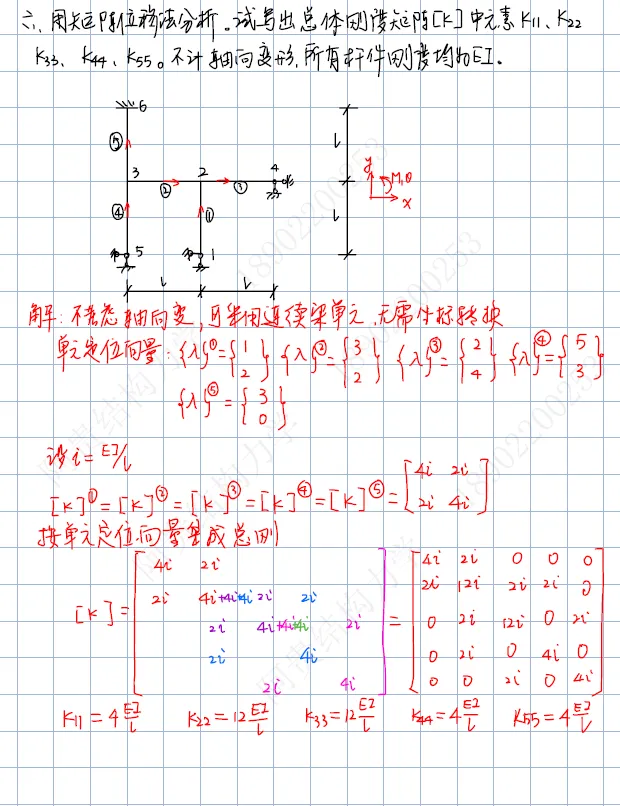 六、用矩阵位移法分析。试写出总体刚度矩阵[K]中元素K11、K22
K33、K44、K55。不计轴向变形,所有杆件刚度均为EI。
6
⑤
3 2 4
② ③
④ ①
5 1
l l
l
l
y M,θ
x
解:不考虑轴向变,可采用连续梁单元,无需坐标转换
单元定位向量:{λ}①={1 2} {λ}②={3 2} {λ}③={2 4} {λ}④={5 3}
{λ}⑤={3 0}
设i=EI/l
[K]①=[K]②=[K]③=[K]④=[K]⑤=[4i 2i
2i 4i]
按单元定位向量集成总刚
[K]=[4i 2i
2i 4i+4i+4i 2i 2i
2i 4i+4i+4i 2i
2i 4i
2i 4i]
=[4i 2i 0 0 0
2i 12i 2i 2i 0
0 2i 12i 0 2i
0 2i 0 4i 0
0 0 2i 0 4i]
K11=4EI/l K22=12EI/l K33=12EI/l K44=4EI/l K55=4EI/l
18902200253
18902200253